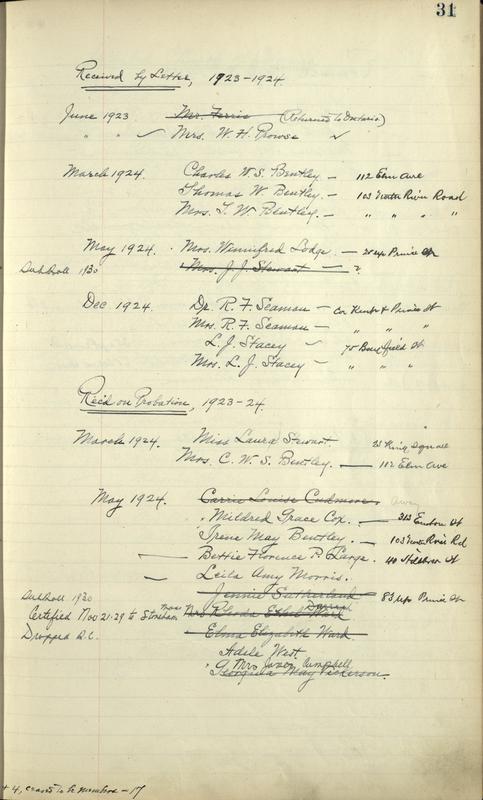 31
Received by Letter, 1923-1924.
June 1923 Mr. Ferris (Returned to Ontario)
" " Mrs. W. H. Prowse
March 1924. Charles W. S. Bentley - 112 Elm Ave
Thomas W. Bentley. - 103 North River Road
Mrs. T. W. Bentley. - " " " "
May 1924. Mrs. Winnifred Lodge. - Prince St
1930 Mrs. J. J. Stewart - ?
Dec 1924. Dr. R. F. Seaman - Cor Kent & Prince St
Mrs. R. F. Seaman - " " "
L. J. Stacey - 75 St
Mrs. L. J. Stacey - " " "
Rec'd on Probation, 1923-24.
March 1924. Miss Laura Stewart 25 King Square
Mrs. C. W. S. Bentley. - 112 Elm Ave
May 1924. Carrie Louise Cudmore.
Mildred Grace Cox. - 313 Euston St
Irene May Bentley. - 103 North River Rd
Bettie Florence R. Large. 40 St
Leila Amy Morris.
Jennie Sutherland - 83 Prince St
1930
Certified Nov 21.29 to Stoneham Mass Mrs Rhoda Ethel Ward
Dropped Q.C. Elma Elizabeth Ward.
Adele West.
Mrs James Campbell
Georgina May Vickerson.
+ 4, ceased to be members - 17